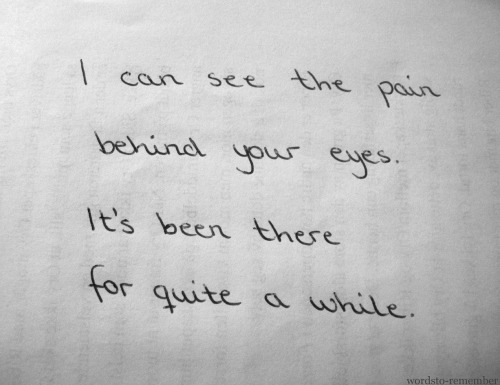 I can see the pain
behind your eyes.
It's been there
for quite a while.
wordsto-remember